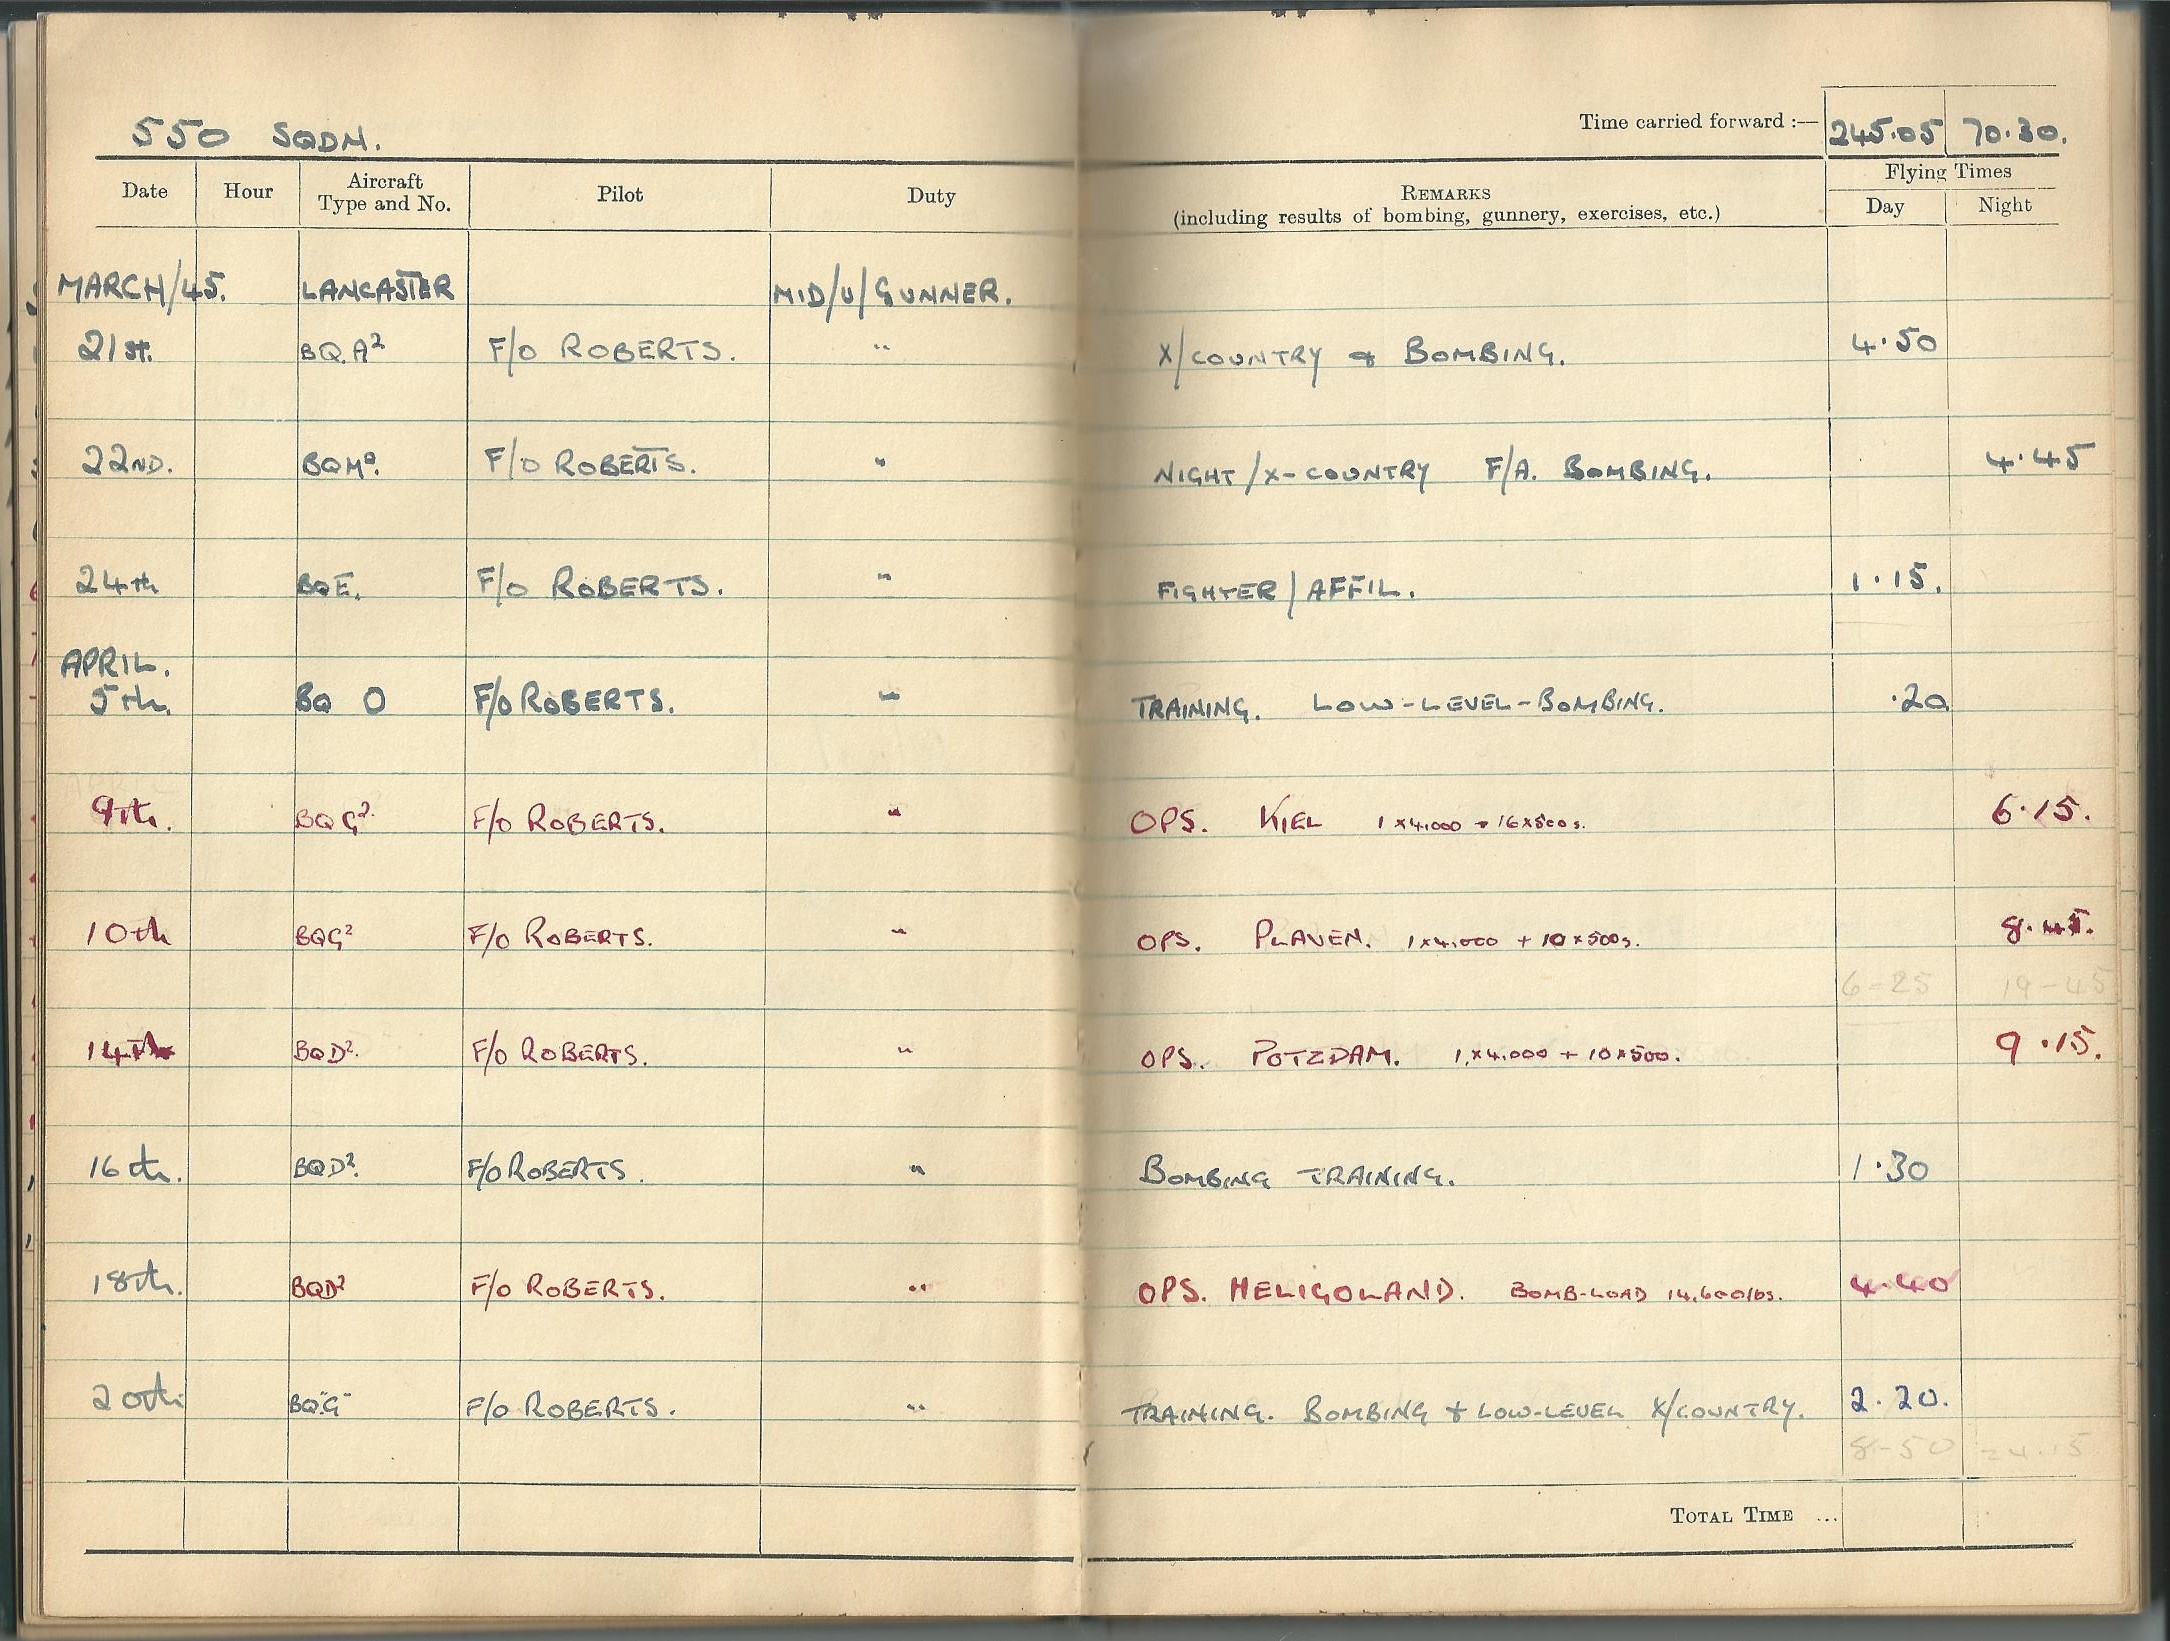 Time carried forward :— 245.05 70.30.
550 SQDN.
Date Hour Aircraft Type and No. Pilot Duty REMARKS (including results of bombing, gunnery, exercises, etc.) Flying Times Day Night
MARCH/45. LANCASTER MID/U/GUNNER.
21st. BQ.A² F/O ROBERTS. " X/COUNTRY & BOMBING. 4.50
22ND. F/O ROBERTS. " NIGHT/X-COUNTRY F/A. BOMBING. 4.45
24th BQE. F/O ROBERTS. " FIGHTER/AFFIL. 1.15.
APRIL.
5th. BQ O F/O ROBERTS. " TRAINING. LOW-LEVEL-BOMBING. .20
9th. BQG². F/O ROBERTS. " OPS. KIEL 1x4.000 + 16x500s. 6.15.
10th BQG² F/O ROBERTS. " OPS. PLAUEN. 1x4.000 + 10x500s. 8.45.
6-25 19-45
14th BQD². F/O ROBERTS. " OPS. POTZDAM. 1x4.000 + 10x500. 9.15.
16th. BQD². F/O ROBERTS. " BOMBING TRAINING. 1.30
18th. BQD² F/O ROBERTS. " OPS. HELIGOLAND. BOMB-LOAD 14,600lbs. 4.40
20th BQ"G" F/O ROBERTS. " TRAINING. BOMBING & LOW-LEVEL X/COUNTRY. 2.20.
8-50 24.15
TOTAL TIME ...